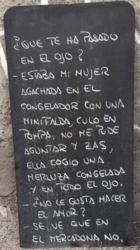 ¿QUE TE HA PASADO
EN EL OJO?
- ESTABA MI MUJER
AGACHADA EN EL
CONGELADOR CON UNA
MINIFALDA, CULO EN
POMPA, NO ME PUDE
AGUANTAR Y ZAS,
ELLA COGIO UNA
MERLUZA CONGELADA
Y EN TODO EL OJO.
- ¿NO LE GUSTA HACER
EL AMOR?
- SE VE QUE EN
EL MERCADONA NO.